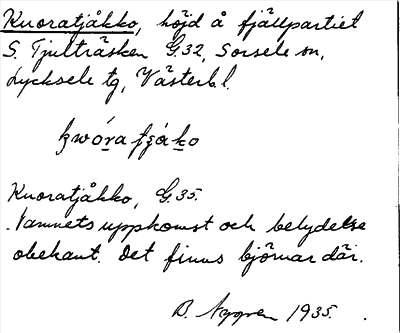 Kuoratjåkko, höjd å fjällpartiet
S. Tjulträsken G.32, Sorsele sn,
Lycksele tg, Västerb. l.
Kuoratjåkko, G.35.
Namnets uppkomst och betydelse
obekant. Det finns björnar där.
B. Nygren 1935.